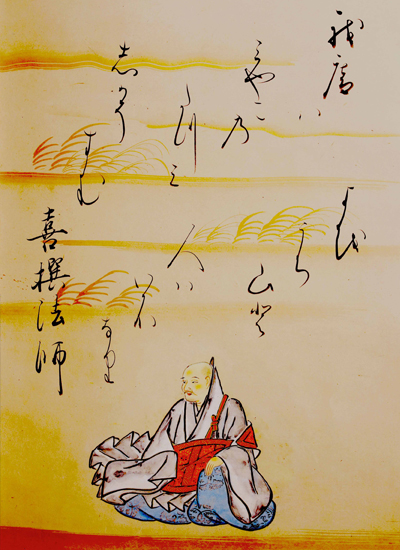 我庵ハ
みやこ乃
たつミ
志かそ
すむ
よを
うち
山と
人ハ
いふ
なり
喜撰法師